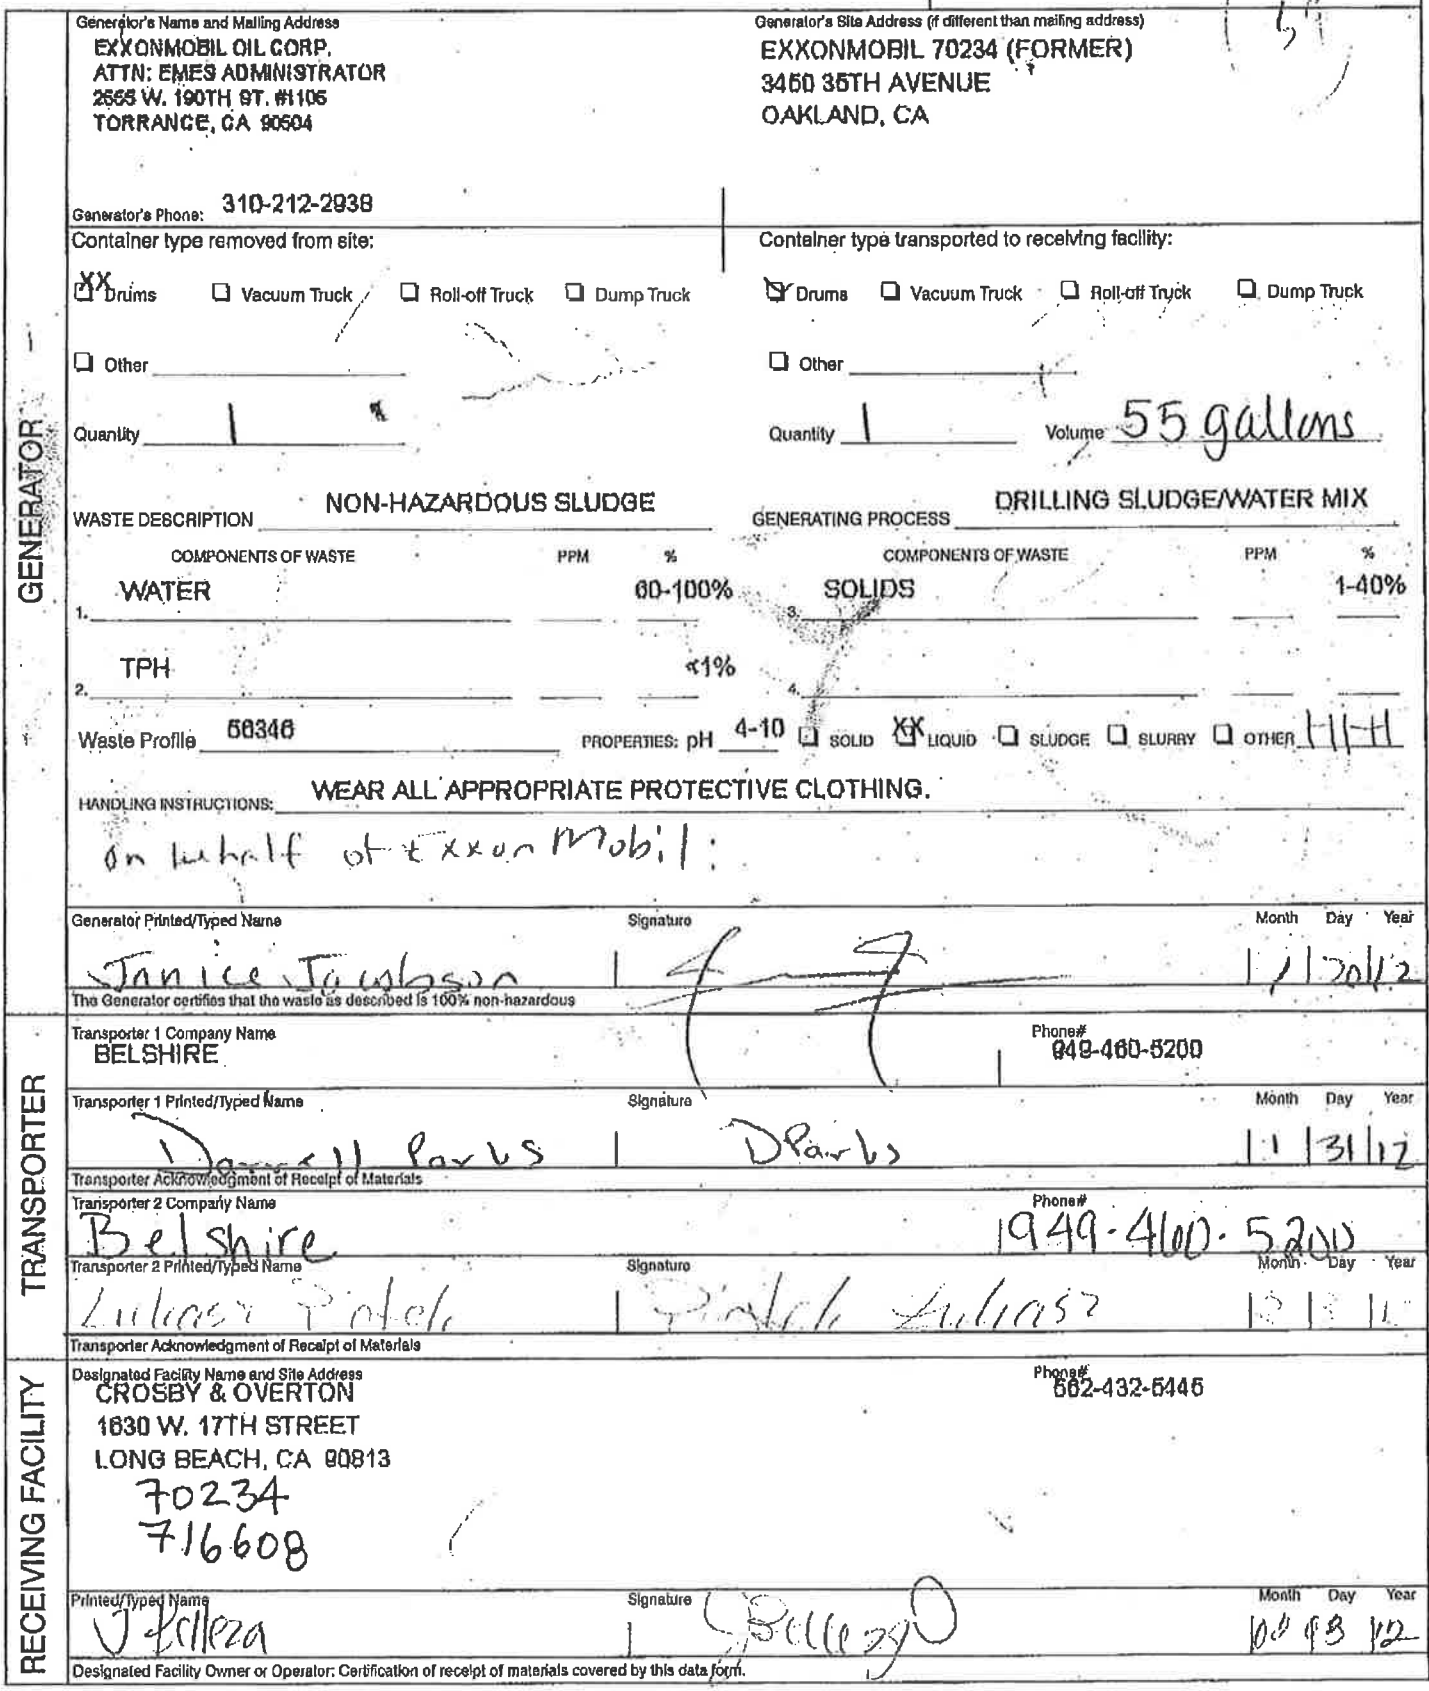 Generator's Name and Mailing Address
EXXONMOBIL OIL CORP.
ATTN: EMES ADMINISTRATOR
2555 W. 190TH ST. #1105
TORRANCE, CA 90504
Generator's Phone: 310-212-2938
Generator's Site Address (if different than mailing address)
EXXONMOBIL 70234 (FORMER)
3450 35TH AVENUE
OAKLAND, CA
GENERATOR
Container type removed from site:
XX Drums Vacuum Truck Roll-off Truck Dump Truck
Other
Quantity 1
Container type transported to receiving facility:
Drums Vacuum Truck Roll-off Truck Dump Truck
Other
Quantity 1 Volume 55 gallons
WASTE DESCRIPTION NON-HAZARDOUS SLUDGE GENERATING PROCESS DRILLING SLUDGE/WATER MIX
COMPONENTS OF WASTE PPM % COMPONENTS OF WASTE PPM %
1. WATER 60-100% 3. SOLIDS 1-40%
2. TPH <1% 4.
Waste Profile 56346 PROPERTIES: pH 4-10 SOLID XX LIQUID SLUDGE SLURRY OTHER
HANDLING INSTRUCTIONS: WEAR ALL APPROPRIATE PROTECTIVE CLOTHING.
on behalf of ExxonMobil:
Generator Printed/Typed Name Signature Month Day Year
Janice Jacobson
The Generator certifies that the waste as described is 100% non-hazardous
TRANSPORTER
Transporter 1 Company Name Phone#
BELSHIRE 949-460-5200
Transporter 1 Printed/Typed Name Signature Month Day Year
Darrell Parks DParks 1 31 12
Transporter Acknowledgment of Receipt of Materials
Transporter 2 Company Name Phone#
Belshire 949-460-5200
Transporter 2 Printed/Typed Name Signature Month Day Year
Lukasz
Transporter Acknowledgment of Receipt of Materials
RECEIVING FACILITY
Designated Facility Name and Site Address Phone#
CROSBY & OVERTON 562-432-5445
1630 W. 17TH STREET
LONG BEACH, CA 90813
70234
716608
Printed/Typed Name Signature Month Day Year
Designated Facility Owner or Operator: Certification of receipt of materials covered by this data form.